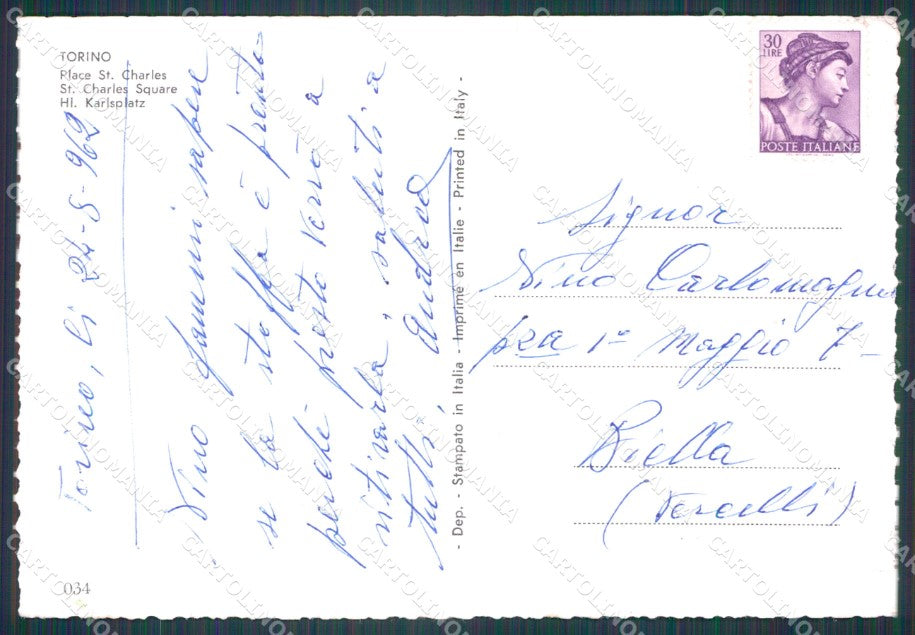 TORINO
Place St. Charles
St. Charles Square
Hl. Karlsplatz
Torino, li 24-5-962
Nino fammi sapere
se la stoffa è pronta
perché presto verrò a
ritirarla, saluti a
tutti, Andrea
- Dep. - Stampato in Italia - Imprimé en Italie - Printed in Italy -
30
LIRE
POSTE ITALIANE
Signor
Nino Carlomagno
pza 1º Maggio 7-
Biella
(Vercelli)
034
CARTOLINOMANIA